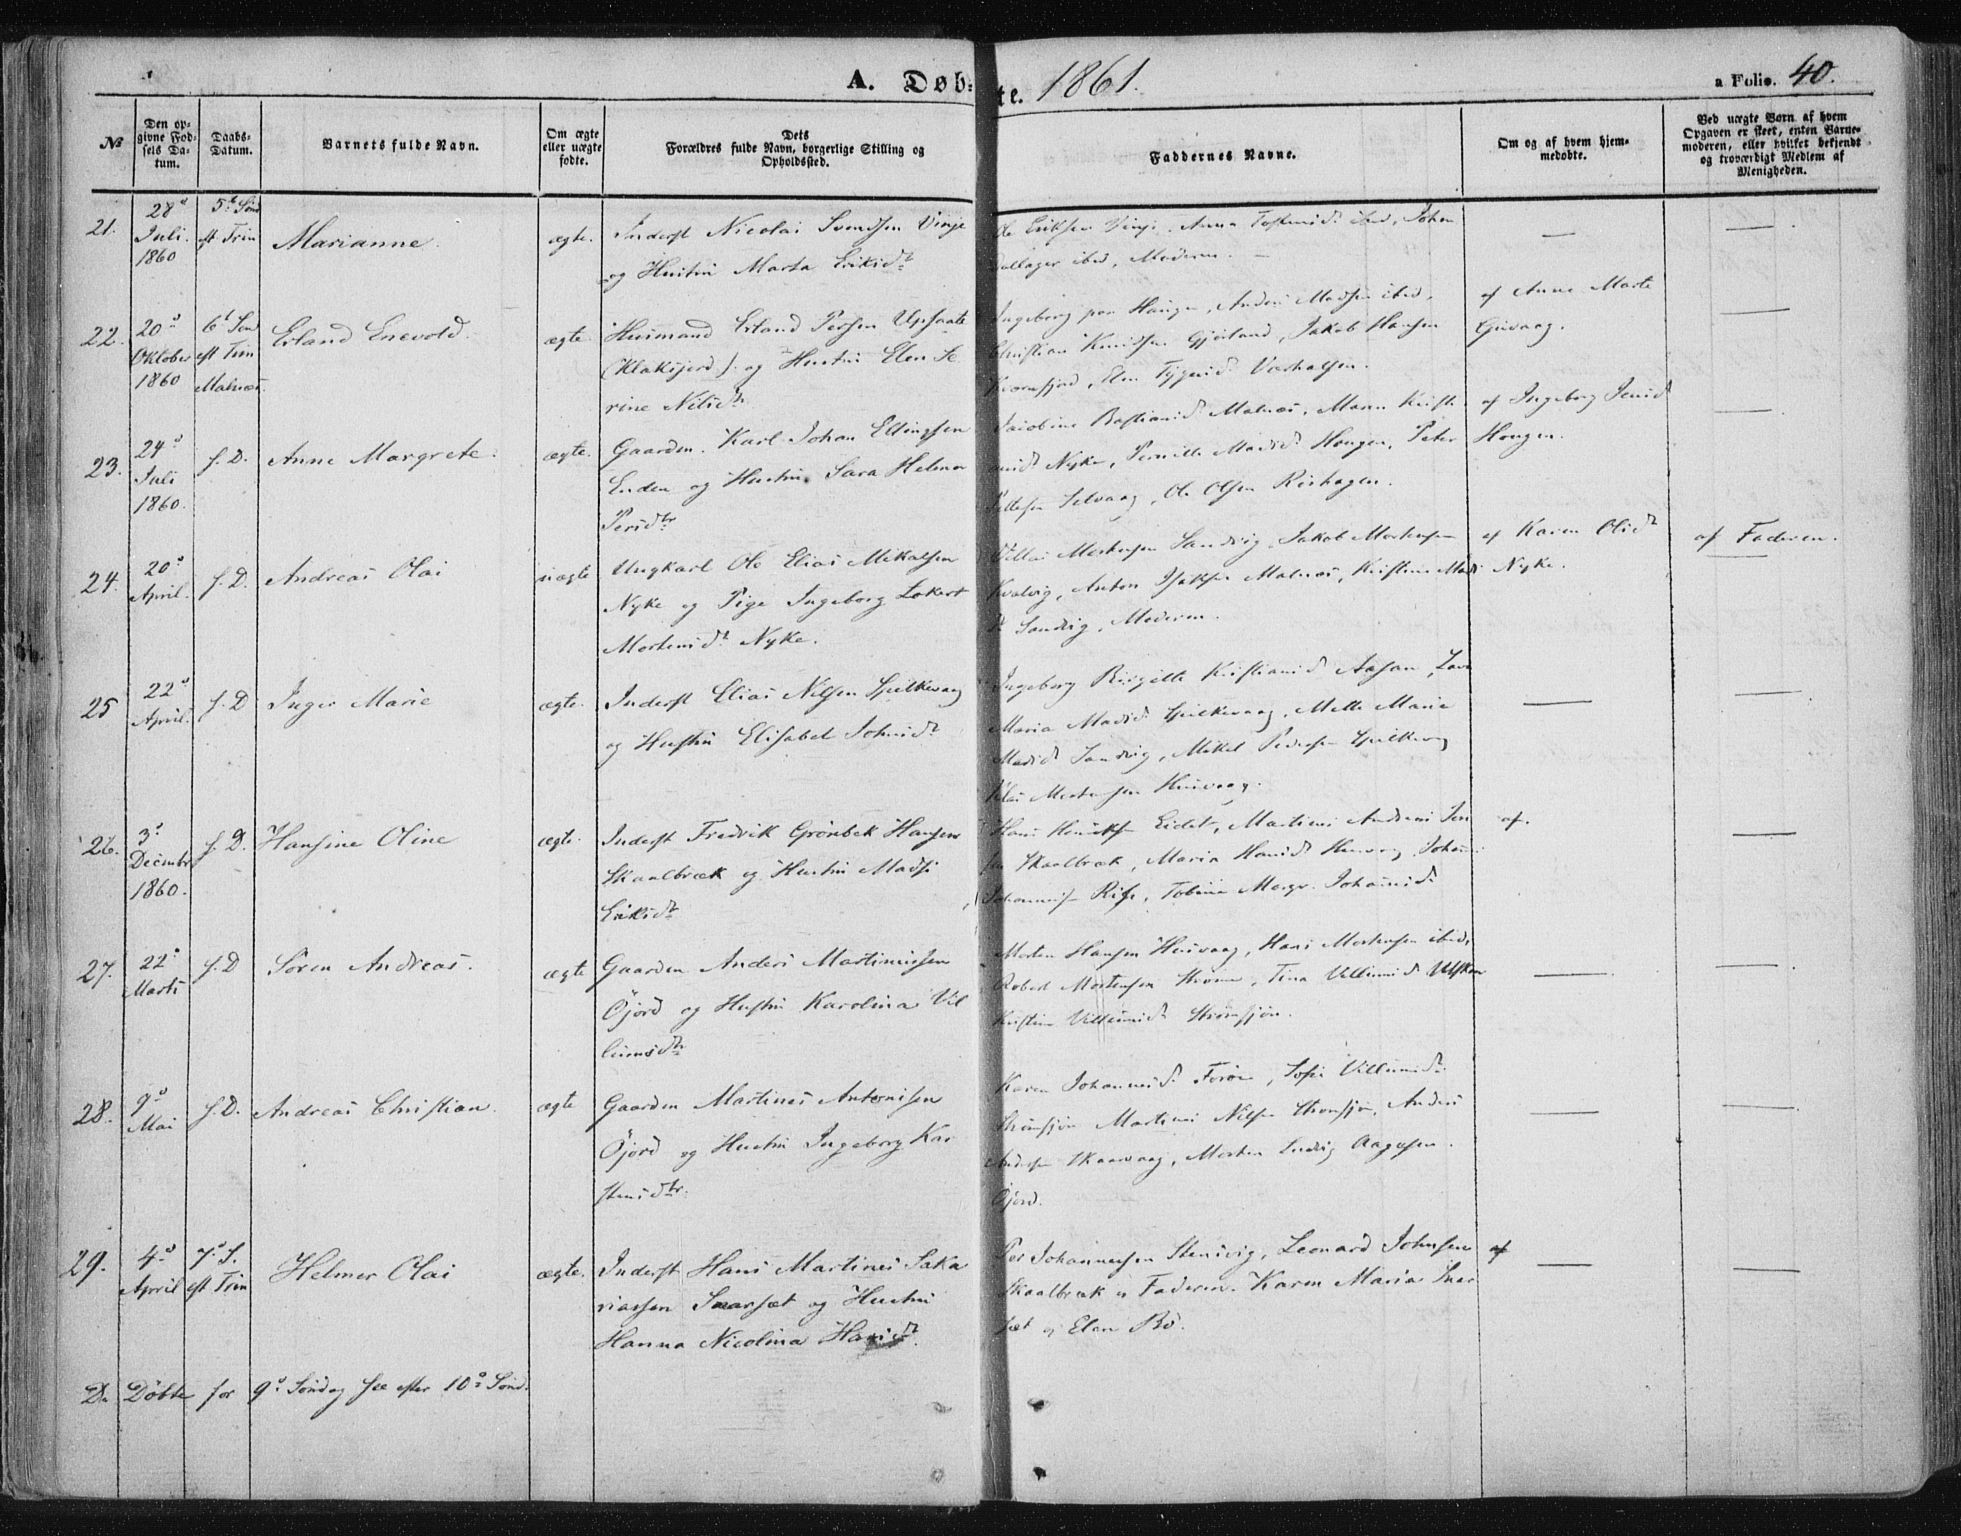 A. Døbte. 1861.
a Folio. 40.
№
Den opgivne Fødsels Datum.
Daabs-Datum.
Barnets fulde Navn.
Om ægte eller uægte fødte.
Dets Forældres fulde Navn, borgerlige Stilling og Opholdssted.
Faddernes Navne.
Om og af hvem hjemmedøbte.
Ved uægte Børn af hvem Opgaven er skeet, enten Barnemoderen, eller hvilket bekjendt og troværdigt Medlem af Menigheden.
21. 28de Juli. 1860 5te Sønd est Trin Marianne. ægte.
Inderst Nicolai Svendsen Vinje
og Hustru Marta Eriksdtr
Ole Eriksen Vinje, Anna ibid, Johan
ibid, Moderen. —
22. 20de Oktober 1860 6t Søn est Trin Malnæs. Erland Enevold. ægte
Huusmand Erland Persen Upsaate
(Klaksjord) og Hustru Elen Se
rine Nilsdtr
Ingeborg paa Haugen, Anders Madsen ibid,
Christian Knudsen Gjørland, Jakob Hansen
Elen
af Anne Marte
23. 24de Juli 1860. s. D. Anne Margrete. ægte.
Gaardm. Karl Johan Ellingsen
Enden og Hustru Sara Helmer
Persdtr
Jacobine Bastiansd Malnæs, Maren Kristi
ansd Nyke, Pernille Madsd Hougen, Peter
Pettersen Selvaag, Ole Olsen Rishagen.
af Ingeborg Jensd
Hougen.
24. 20de April. s. D. Andreas Olai uægte
Ungkarl Ole Elias Mikalsen
Nyke og Pige Ingeborg Lokert
Mortensdt Nyke.
Mortensen Sandvig, Jakob Mortensen
Kvalvig, Anton Isaksen Malnæs, Kristine Mads
dt Sandvig, Moderen.
af Karen Olsdt
Nyke.
af Faderen.
25 22de April. s. D Inger Marie ægte.
Inderst Elias Nilsen Spilkevaag
og Hustru Elisabet Johnsdt
Ingeborg Birgitte Kristiansd Aasan,
Maria Madsd Spilkevaag, Mette Marie
Madsd Sandvig, Mikel Pedersen Spilkevaag
Mortensen Husvaag.
26. 3de Decmbr 1860. s. D. Hansine Oline ægte.
Inderst Fredrik Grönbek Hansen
Skaalbræk og Hustru Madsi
Eriksdtr
Hans Eidet, Martinus Andreas Jen
sen Skaalbræk, Maria Hansdt
Rise, Tobine Margr. Johansd.
af.
27. 22de Marts s. D Søren Andreas. ægte
Gaardm Anders Martinussen
Öjord og Hustru Karolina Vil
lumsdtr
Morten Hansen Husvaag, Hans Mortensen ibid,
Robert Mortensen Tina Villumsd
Kristine Villumsdt Strømsjøn.
28. 9de Mai s. D. Andreas Christian. ægte
Gaardm Martines Antonisen
Öjord og Hustru Ingeborg Kar
stensdtr.
Karen Johannesd. Forøn, Sofie Villumsdt
Strømsjøn Martines Nilsen Strømsjøn, Anders
Andersen Skaarvaag, Morten Ludvig Aagesen.
Öjord.
29. 4de April 7de S. est Trin Helmer Olai ægte.
Inderst Hans Martines Saka
riassen Snarsæt og Hustru
Hanna Nicolina Hansdt.
Per Johannesen Stensvig, Leonard Johnsen
Skaalbræk og Faderen. Karen Maria Snar
sæt og Elen Bö.
af
De Döbte for 9de Söndag see efter 10de Sönd.